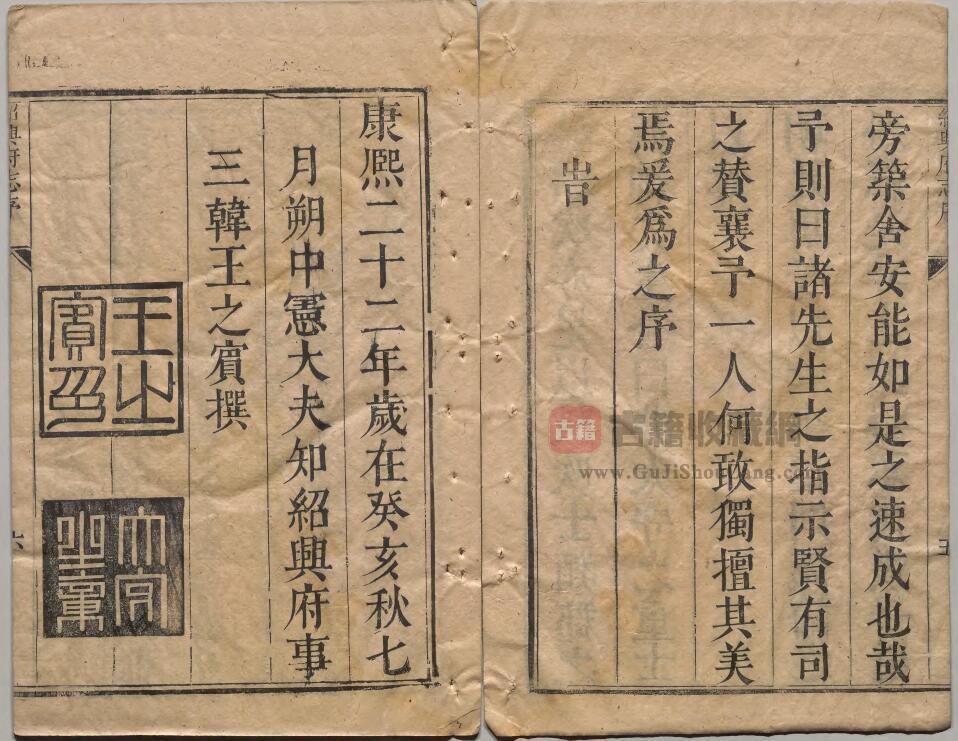 旁築舍安能如是之速成也哉
予則曰諸先生之指示賢有司
之賛襄予一人何敢獨擅其美
焉爰爲之序
旹
康熈二十二年歲在癸亥秋七
月朔中憲大夫知紹興府事
三韓王之賔撰
王之
賔印
之章
紹興府志序
五
紹興府志序
六
古籍
古籍收藏網
www.GuJiShouCang.com